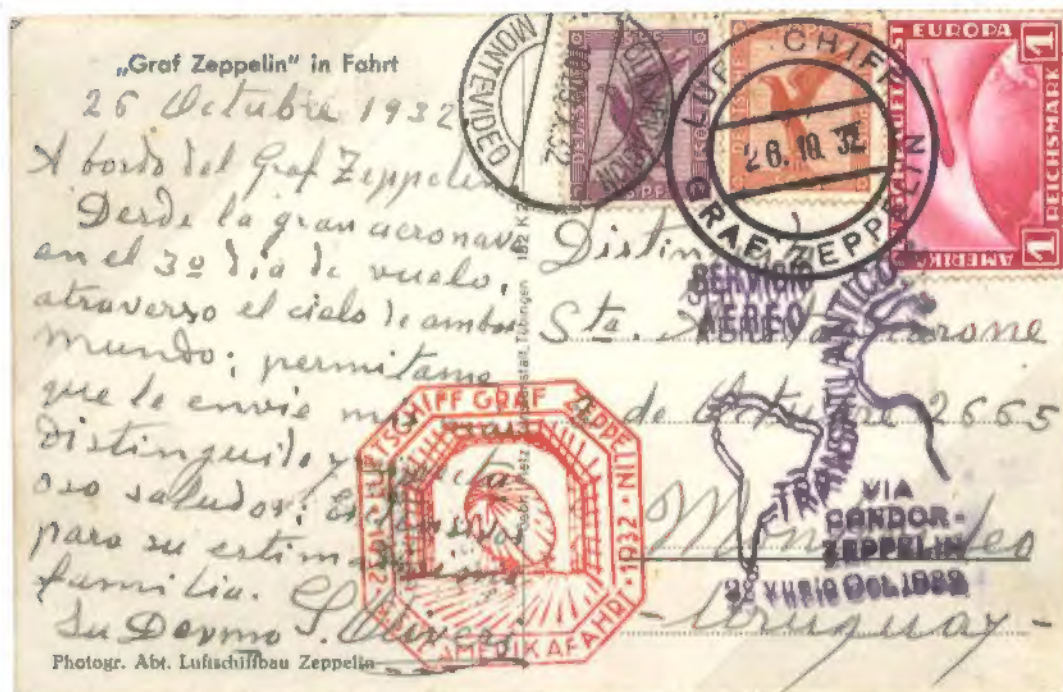 „Graf Zeppelin" in Fahrt
26 Octubre 1932
A bordo del Graf Zeppelin
Desde la gran aeronave
en el 3º dia de vuelo,
atraverso el cielo de ambos
mundo; permitame
que le envie mi
distinguido y
oso saludos;
para su estima
familia.
Su Devmo S. Oliveri
Photogr. Abt. Luftschiffbau Zeppelin
MONTEVIDEO
DEUTSCHE
LUFTSCHIFF
26.10.32
GRAF ZEPPELIN
EUROPA
1 REICHSMARK 1
AMERIKA
Sta.
de Octubre 2665
Montevideo
- Uruguay -
SERVICIO
AEREO
TRANSATLANTICO
VIA
CONDOR-
ZEPPELIN
Oct. 1932
LUFTSCHIFF GRAF ZEPPELIN · 1932 ·
AMERIKAFAHRT
Tübingen